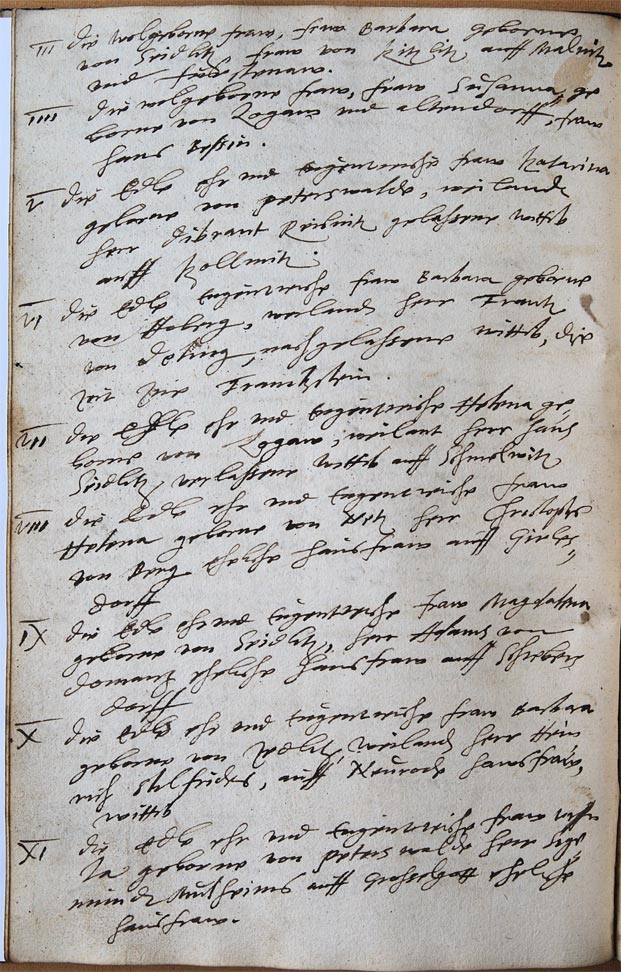 III die wolgeborne fraw, fraw Barbara geborne
von Seidlitz fraw von Kitlitz auff Malmitz
und Fürstenaw.
IIII die wolgeborne fraw, fraw Susanna ge
borne von Logaw und altendorff, fraw
Hans
V die Edle ehr und tugentreiche fraw Katarina
geborne von peterswalde, weilandt
herr gelassene wittib
auff Kollmitz.
VI die Edle tugentreiche fraw Barbara geborne
von Hoberg, weilandt herr Frantz
von nachgelassene wittib, die
zeit Franckstein.
VII die Edle ehr und tugentreiche Helena ge
borne von Logaw, weilant herr Hans
Seidlitz verlassene wittib auff Schmelwitz
VIII die Edle ehr und tugentreiche fraw
Helena geborne von herr Christophs
von Berg eheliche hausfraw auff Girls=
dorff
IX die Edle ehr und tugentreiche fraw Magdalena
geborne von Seidlitz, herr Adams von
domantz eheliche hausfraw auff Schrebers
dorff
X die Edle ehr und tugentreiche fraw Barbara
geborne von Zedlitz, weilandt herr Hein
rich Stilfrides, auff Neurode hausfraw,
wittib
XI die Edle ehr und tugentreiche fraw
la geborne von peterswalde herr Sige
mundt auff eheliche
hausfraw.